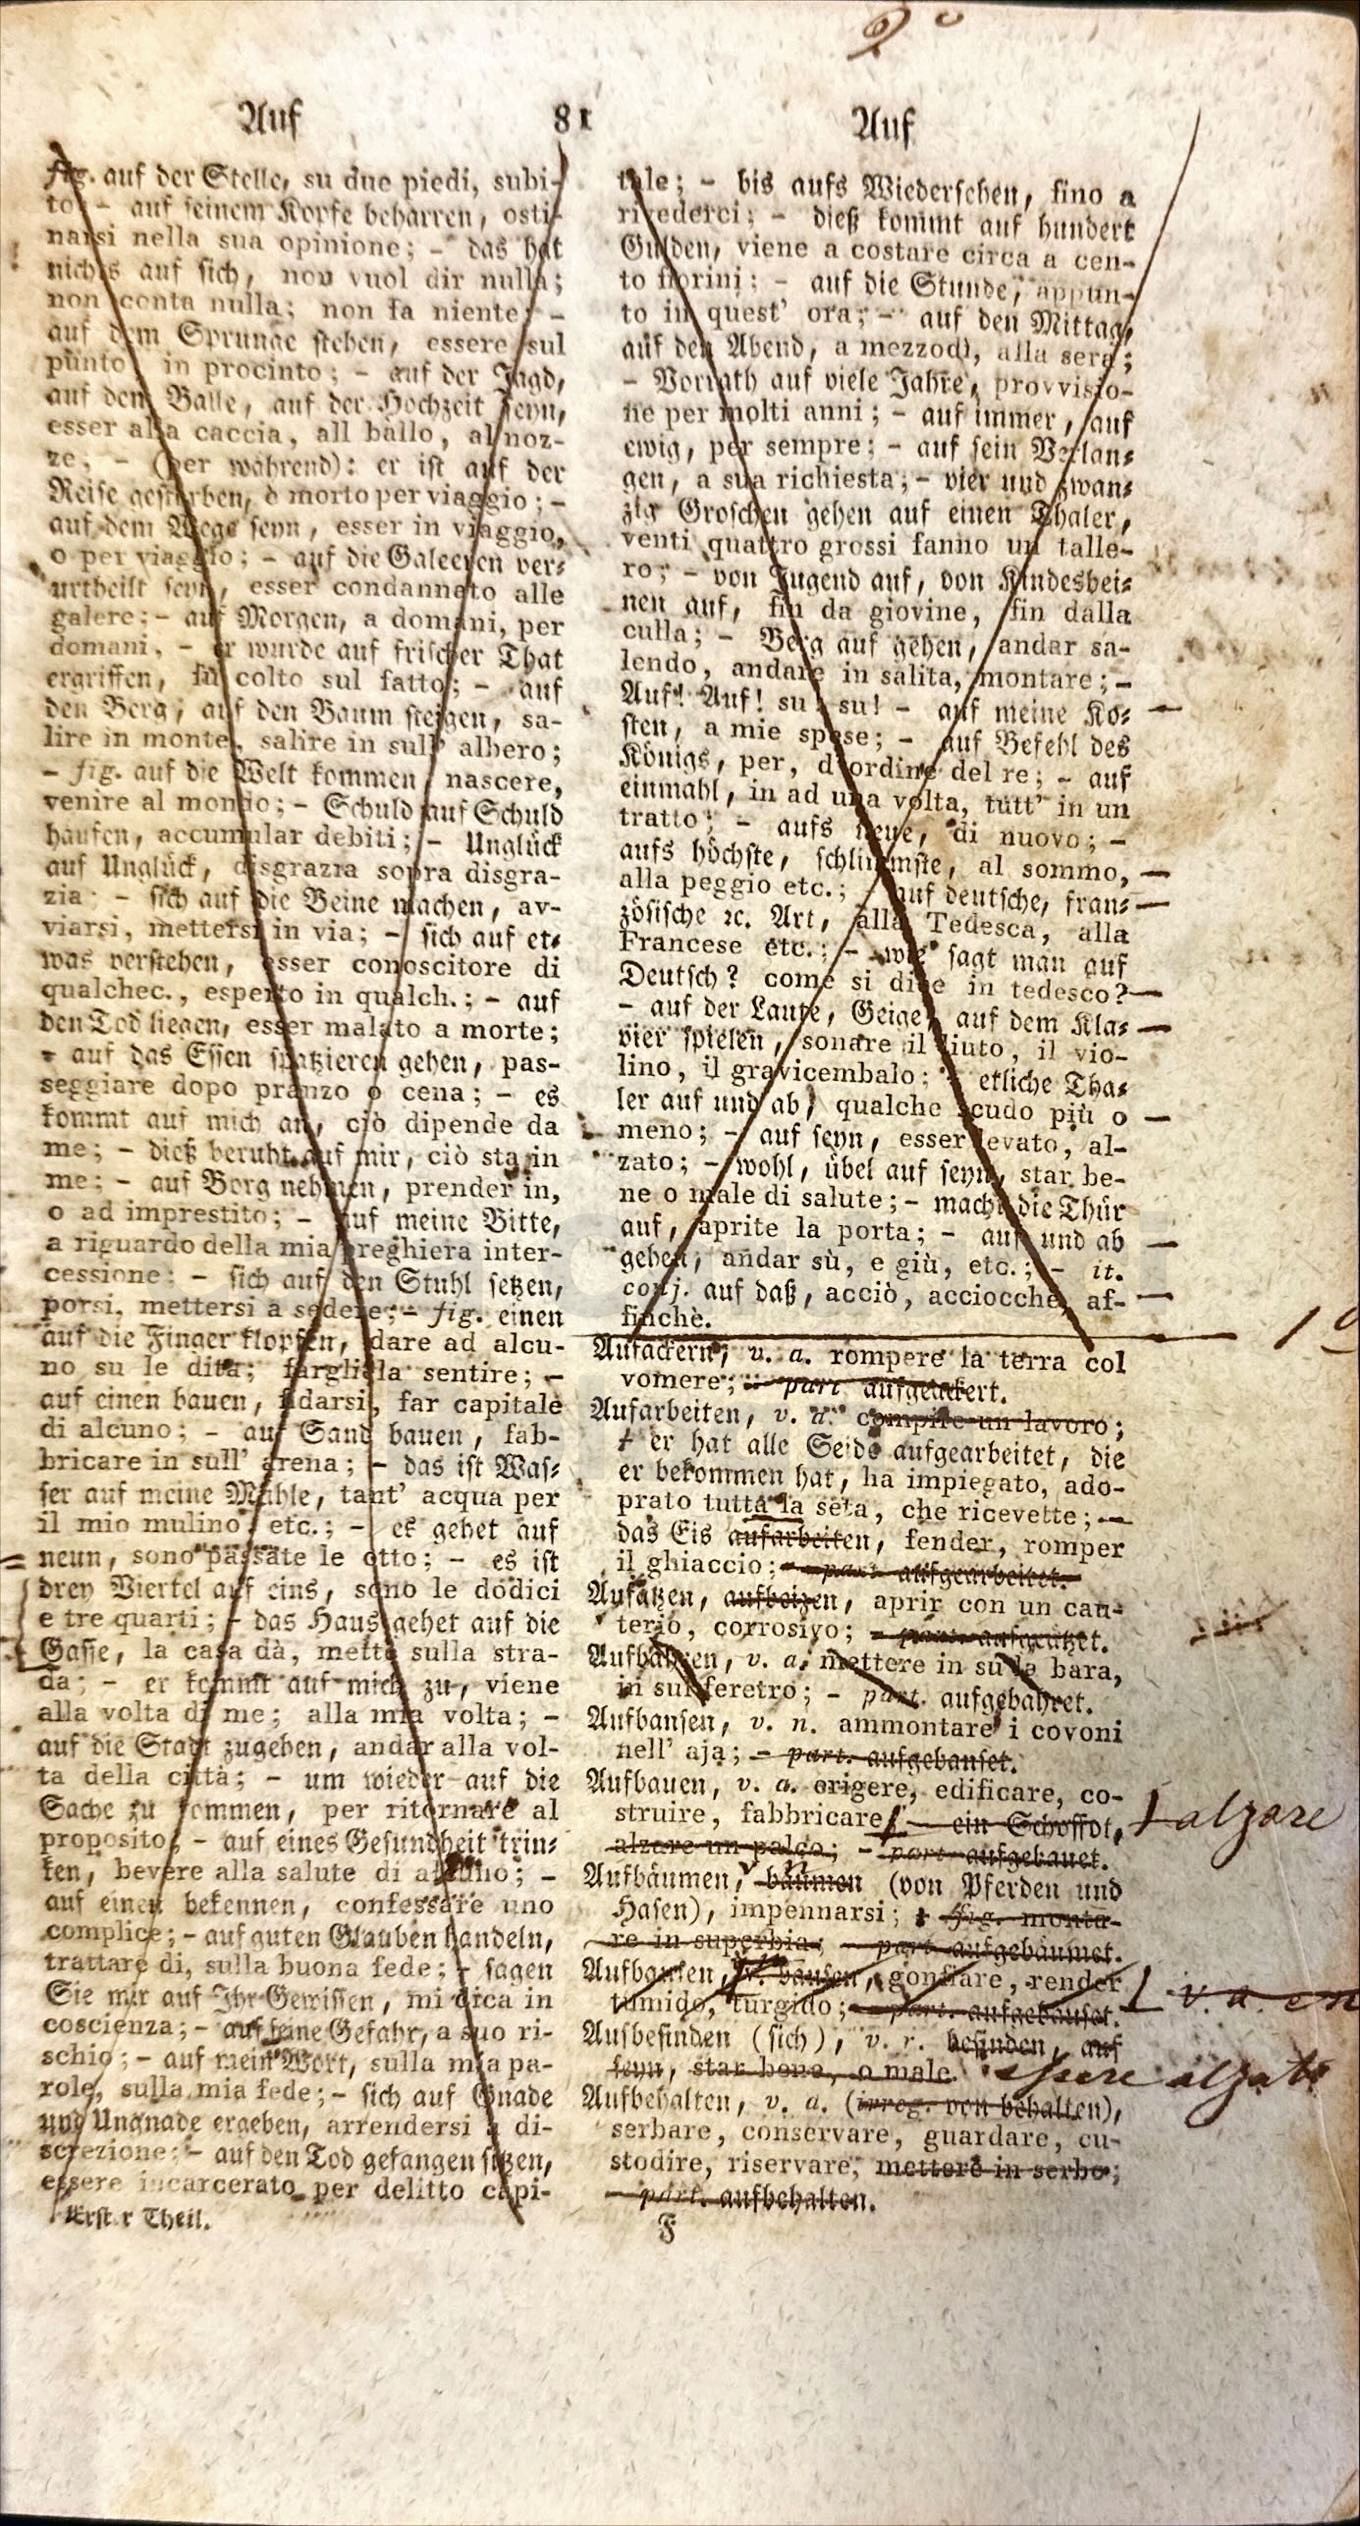 2º
Auf 81 Auf
fig. auf der Stelle, su due piedi, subi-
to; - auf seinem Kopfe beharren, osti-
narsi nella sua opinione; - das hat
nichts auf sich, non vuol dir nulla;
non conta nulla; non fa niente; -
auf dem Sprunge stehen, essere sul
punto, in procinto; - auf der Jagd,
auf dem Balle, auf der Hochzeit seyn,
esser alla caccia, all ballo, al noz-
ze; - (per während): er ist auf der
Reise gestorben, è morto per viaggio; -
auf dem Wege seyn, esser in viaggio,
o per viaggio; - auf die Galeeren ver-
urtheilt seyn, esser condannato alle
galere; - auf Morgen, a domani, per
domani, - er wurde auf frischer That
ergriffen, fù colto sul fatto; - auf
den Berg, auf den Baum steigen, sa-
lire in monte, salire in sull' albero;
- fig. auf die Welt kommen, nascere,
venire al mondo; - Schuld auf Schuld
häufen, accumular debiti; - Unglück
auf Unglück, disgrazia sopra disgra-
zia; - sich auf die Beine machen, av-
viarsi, mettersi in via; - sich auf et-
was verstehen, esser conoscitore di
qualchec., esperto in qualch.; - auf
den Tod liegen, esser malato a morte;
- auf das Essen spatzieren gehen, pas-
seggiare dopo pranzo o cena; - es
kommt auf mich an, ciò dipende da
me; - dieß beruht auf mir, ciò sta in
me; - auf Borg nehmen, prender in,
o ad imprestito; - auf meine Bitte,
a riguardo della mia preghiera inter-
cessione; - sich auf den Stuhl setzen,
porsi, mettersi a sedere; - fig. einen
auf die Finger klopfen, dare ad alcu-
no su le dita; fargliela sentire; -
auf einen bauen, fidarsi, far capitale
di alcuno; - auf Sand bauen, fab-
bricare in sull' arena; - das ist Was-
ser auf meine Mühle, tant' acqua per
il mio mulino, etc.; - es gehet auf
neun, sono passate le otto; - es ist
drey Viertel auf eins, sono le dodici
e tre quarti; - das Haus gehet auf die
Gasse, la casa dà, mette sulla stra-
da; - er kommt auf mich zu, viene
alla volta di me; alla mia volta; -
auf die Stadt zugehen, andar alla vol-
ta della città; - um wieder auf die
Sache zu kommen, per ritornare al
proposito, - auf eines Gesundheit trin-
ken, bevere alla salute di alcuno; -
auf einen bekennen, confessare uno
complice; - auf guten Glauben handeln,
trattare di, sulla buona fede; - sagen
Sie mir auf Ihr Gewissen, mi dica in
coscienza; - auf seine Gefahr, a suo ri-
schio; - auf mein Wort, sulla mia pa-
role, sulla mia fede; - sich auf Gnade
und Ungnade ergeben, arrendersi a di-
screzione; - auf den Tod gefangen sitzen,
essere incarcerato per delitto capi-
Erster Theil.
tale; - bis aufs Wiedersehen, fino a
rivederci; - dieß kommt auf hundert
Gulden, viene a costare circa a cen-
to fiorini; - auf die Stunde, appun-
to in quest' ora; - auf den Mittag,
auf den Abend, a mezzodì, alla sera;
- Vorrath auf viele Jahre, provvisio-
ne per molti anni; - auf immer, auf
ewig, per sempre; - auf sein Verlan-
gen, a sua richiesta; - vier und zwan-
zig Groschen gehen auf einen Thaler,
venti quattro grossi fanno un talle-
ro; - von Jugend auf, von Kindesbei-
nen auf, fin da giovine, fin dalla
culla; - Berg auf gehen, andar sa-
lendo, andare in salita, montare; -
Auf! Auf! su! su! - auf meine Ko-
sten, a mie spese; - auf Befehl des
Königs, per, d'ordine del re; - auf
einmahl, in ad una volta, tutt' in un
tratto; - aufs neue, di nuovo; -
aufs höchste, schlimmste, al sommo,
alla peggio etc.; - auf deutsche, fran-
zösische ꝛc. Art, alla Tedesca, alla
Francese etc.; - wie sagt man auf
Deutsch? come si dice in tedesco?
- auf der Laute, Geige, auf dem Kla-
vier spielen, sonare il liuto, il vio-
lino, il gravicembalo; - etliche Tha-
ler auf und ab, qualche scudo più o
meno; - auf seyn, esser levato, al-
zato; - wohl, übel auf seyn, star be-
ne o male di salute; - macht die Thür
auf, aprite la porta; - auf und ab
gehen, andar sù, e giù, etc.; - it.
conj. auf daß, acciò, acciocchè, af-
finchè.
1º
Aufackern, v. a. rompere la terra col
vomere; - part. aufgeackert.
Aufarbeiten, v. a. compire un lavoro;
er hat alle Seide aufgearbeitet, die
er bekommen hat, ha impiegato, ado-
prato tutta la seta, che ricevette; -
das Eis aufarbeiten, fender, romper
il ghiaccio; - part. aufgearbeitet.
Aufätzen, aufbeizen, aprir con un cau-
terio, corrosivo; - part. aufgeätzet.
Aufbahren, v. a. mettere in su la bara,
in sul feretro; - part. aufgebahret.
Aufbansen, v. n. ammontare i covoni
nell' aja; - part. aufgebanset.
Aufbauen, v. a. erigere, edificare, co-
struire, fabbricare; - ein Schoffot, alzare
alzare un palco; - part. aufgebauet.
Aufbäumen, bäumen (von Pferden und
Hasen), impennarsi; - fig. monta-
re in superbia; - part. aufgebäumet.
Aufbausen, bausen, gonfiare, render
tumido, turgido; - part. aufgebauset. v. a. en
Aufbefinden (sich), v. r. befinden, auf
seyn, star bene, o male. essere alzato
Aufbehalten, v. a. (irreg. von behalten),
serbare, conservare, guardare, cu-
stodire, riservare, mettere in serbo;
- part. aufbehalten.
F